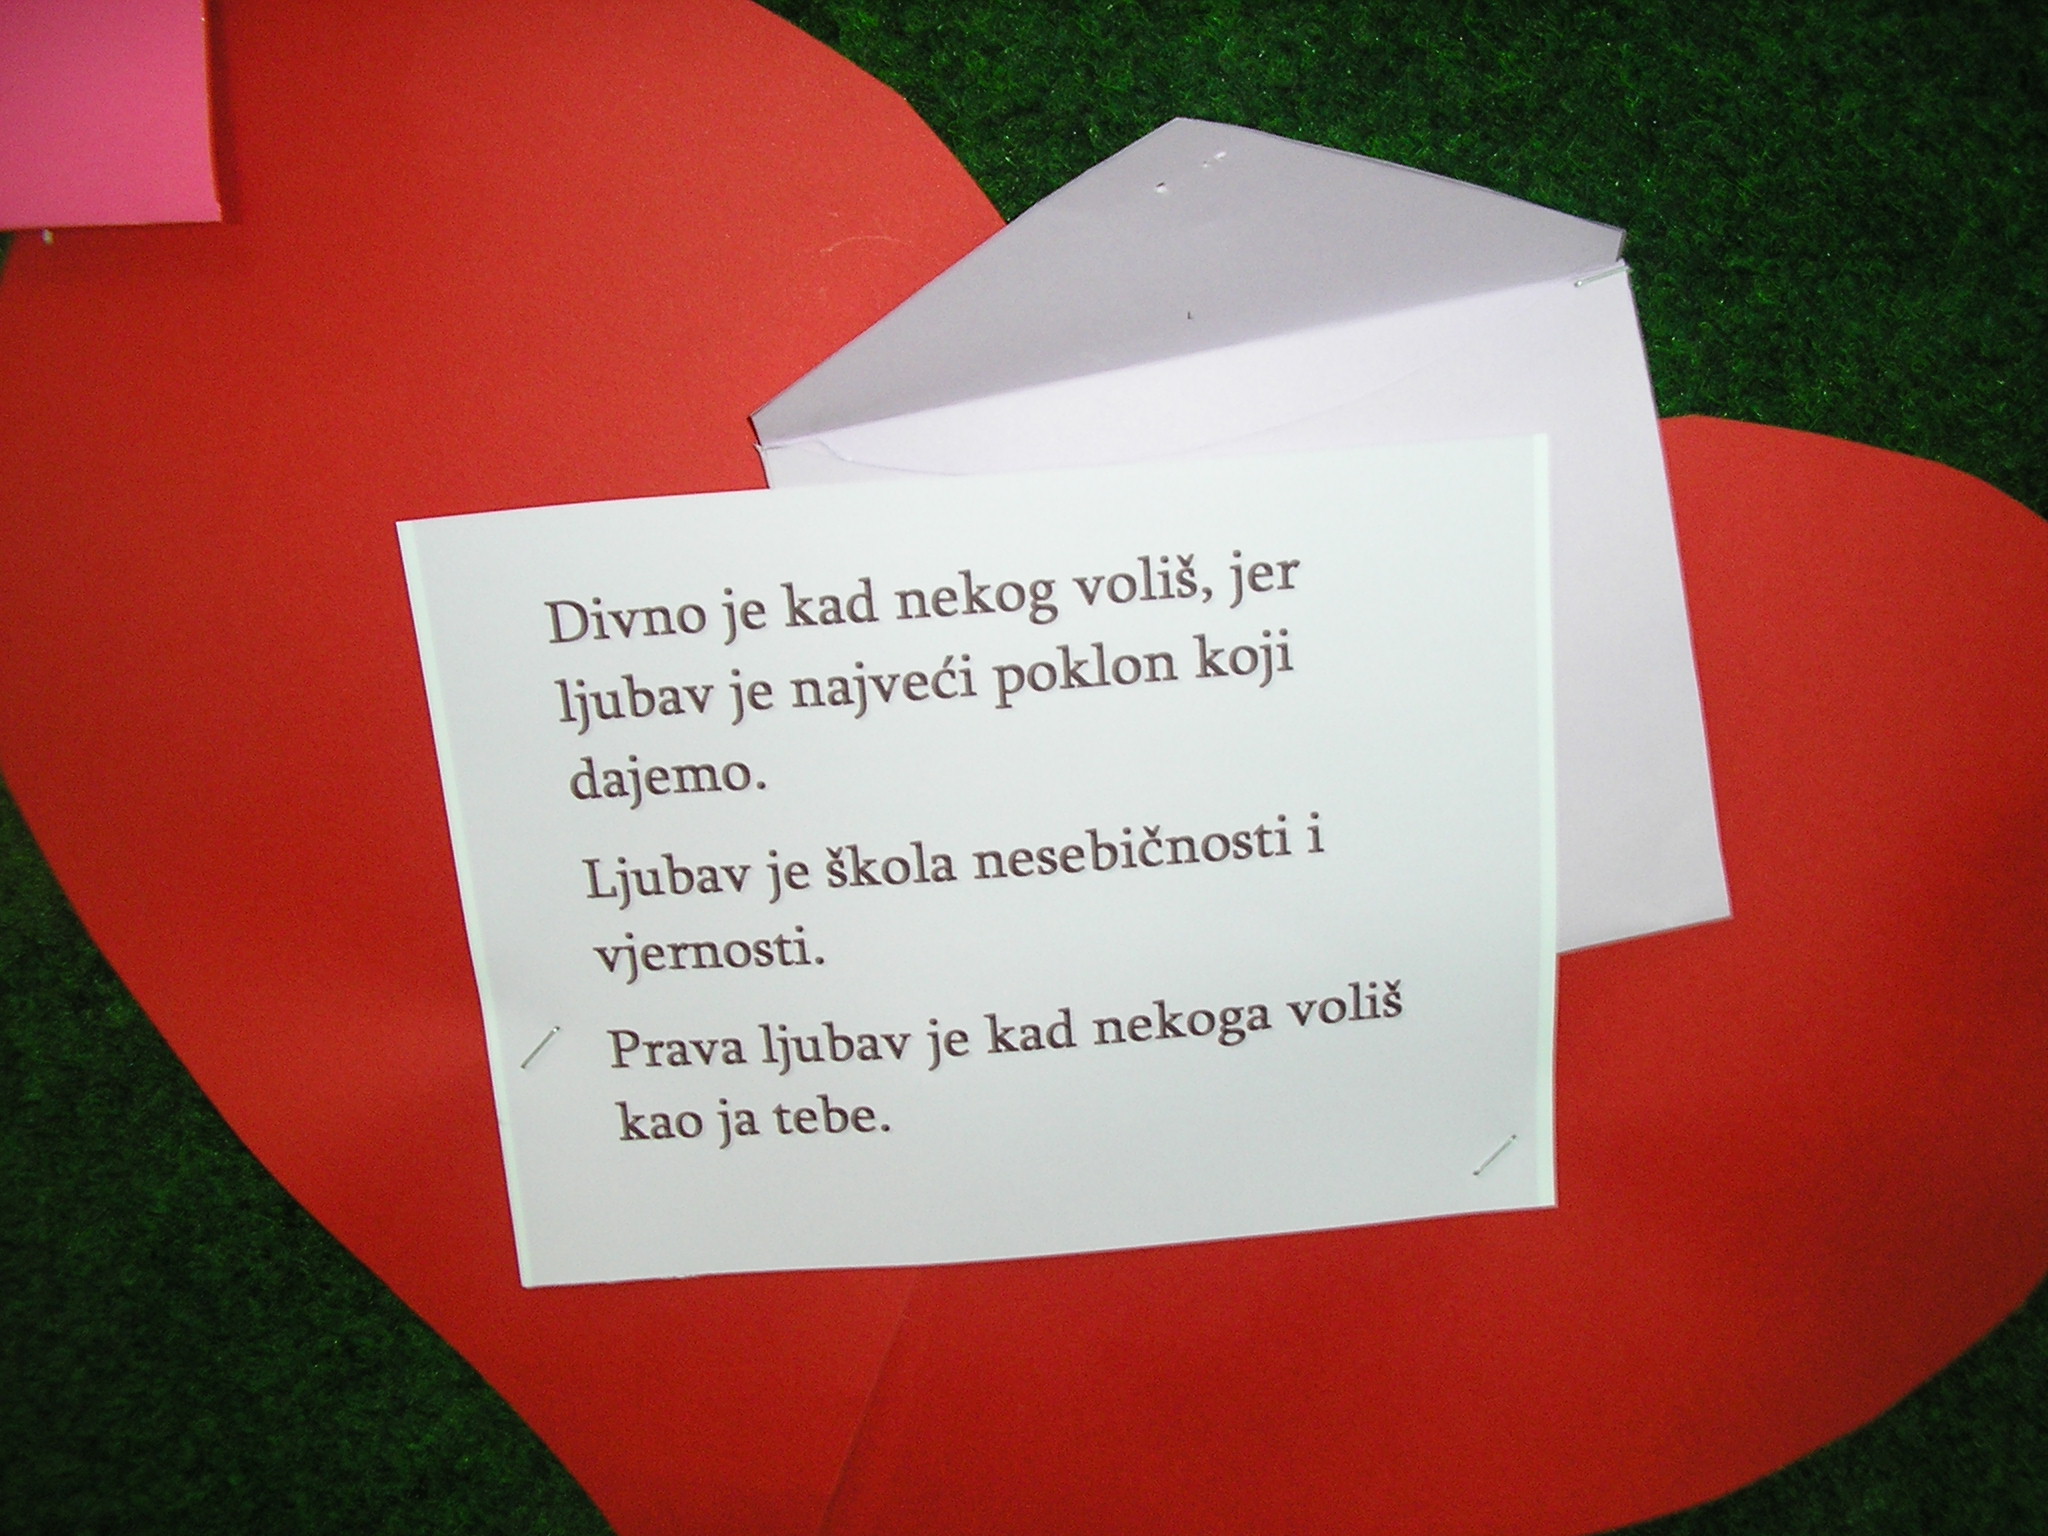 Divno je kad nekog voliš, jer
ljubav je najveći poklon koji
dajemo.
Ljubav je škola nesebičnosti i
vjernosti.
Prava ljubav je kad nekoga voliš
kao ja tebe.